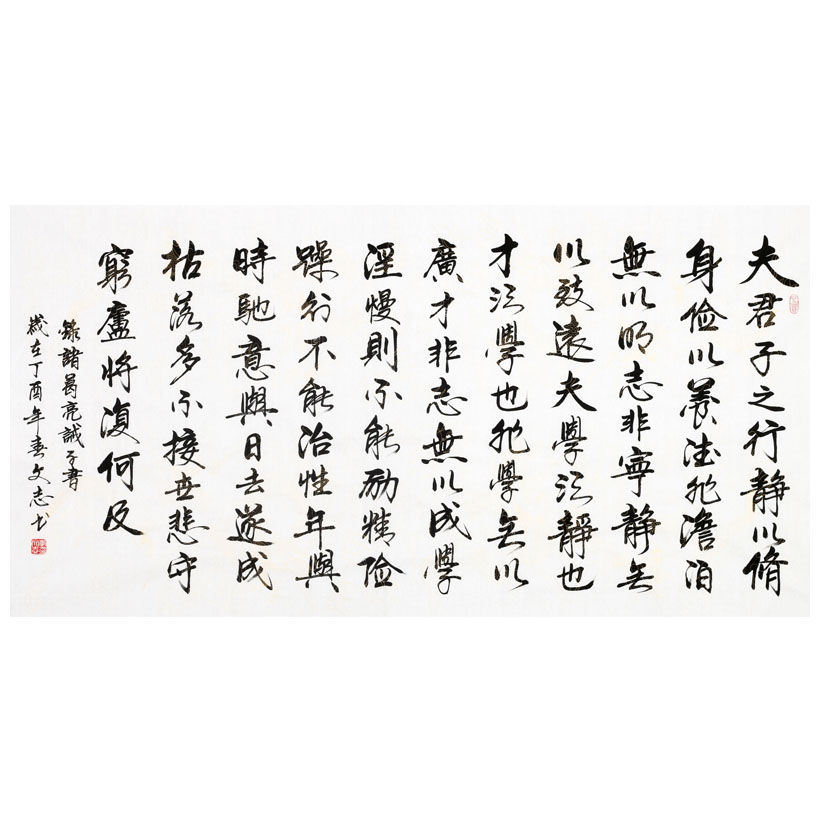 夫君子之行静以脩
身俭以养德非澹泊
無以明志非寧静无
以致遠夫學须静也
才须學也非學无以
廣才非志無以成學
淫慢則不能励精险
躁则不能治性年與
時馳意與日去遂成
枯落多不接世悲守
窮廬将复何及
錄諸葛亮誡子書
歲在丁酉年春文志书